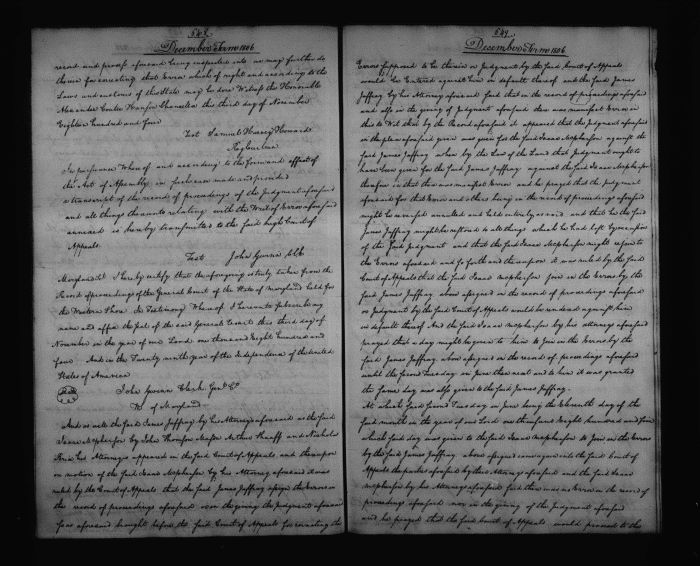 548
December Term 1806
record and process aforesaid being inspected into we may further do
therein for correcting that Error which of right and according to the
Laws and customs of this State may be done Witness the Honorable
Alexander Contee Hanson Chancellor this third day of November
Eighteen hundred and four
Test Samuel Harvey Howard
Reg Cur Can
In pursuance whereof and according to the form and effect of
the Act of Assembly in such case made and provided
a transcript of the record of proceedings of the Judgment aforesaid
and all things thereunto relating with the Writ of Error aforesaid
annexed is hereby transmitted to the said high Court of
Appeals.
Test John Gwinn Clk
Maryland Sct I hereby certify that the foregoing is truly taken from the
Record of proceedings of the General Court of the State of Maryland held for
the Western Shore In Testimony Whereof I hereunto subscribe my
name and affix the Seal of the said General Court this third day of
November in the year of our Lord one thousand Eight hundred and
four And in the Twenty ninth year of the Independence of the United
States of America
John Gwinn Clerk Genl Ct
of Maryland
And as well the said James Jaffray by his Attorney aforesaid as the said
Isaac McPherson by John Thomson Mason Arthur Shaaff and Nicholas
Brice his Attorneys appeared in the said Court of Appeals and thereupon
on motion of the said Isaac McPherson by his Attorney aforesaid it was
ruled by the Court of Appeals that the said James Jaffray assign the Errors in
the record of proceedings aforesaid or in the giving the Judgment aforesaid
so as aforesaid brought before the said Court of Appeals for correcting the
549
December Term 1806
Errors supposed to be therein or Judgment by the said Court of Appeals
would be Entered against him in default thereof and the said James
Jaffray by his Attorney aforesaid said that in the record of proceedings aforesaid
and also in the giving of Judgment aforesaid there was manifest Error in
this to Wit that by the Record aforesaid it appeared that the Judgment aforesaid
in the plea aforesaid given was given for the said Isaac McPherson against the
said James Jaffray when by the Law of the Land that Judgment ought to
have been given for the said James Jaffray against the said Isaac McPherson
therefore in that there was manifest Error and he prayed that the Judgment
aforesaid for that Error and others being in the record of proceedings aforesaid
might be reversed annulled and held entirely as void and that he the said
James Jaffray might be restored to all things which he had lost by occasion
of the said Judgment and that the said Isaac McPherson might rejoin to
the Errors aforesaid and so forth and thereupon it was ruled by the said
Court of Appeals that the said Isaac McPherson Join in the Errors by the
said James Jaffray above assigned in the record of proceedings aforesaid
or Judgment by the said Court of Appeals would be rendered against him
in default thereof And the said Isaac McPherson by his attorney aforesaid
prayed that a day might be given to him to Join in the Errors by the
said James Jaffray above assigned in the record of proceedings aforesaid
until the second Tuesday in June then next and to him it was granted
the same day was also given to the said James Jaffray.
At which said second Tuesday in June being the Eleventh day of the
said month in the year of our Lord one thousand Eight hundred and five
which said day was given to the said Isaac McPherson to Join in the Errors
by the said James Jaffray above assigned came again into the said Court of
Appeals the parties aforesaid by their Attorneys aforesaid and the said Isaac
McPherson by his Attorney aforesaid said there was no Error in the record of
proceedings aforesaid nor in the giving of the Judgment aforesaid
and he prayed that the said Court of Appeals would proceed to the